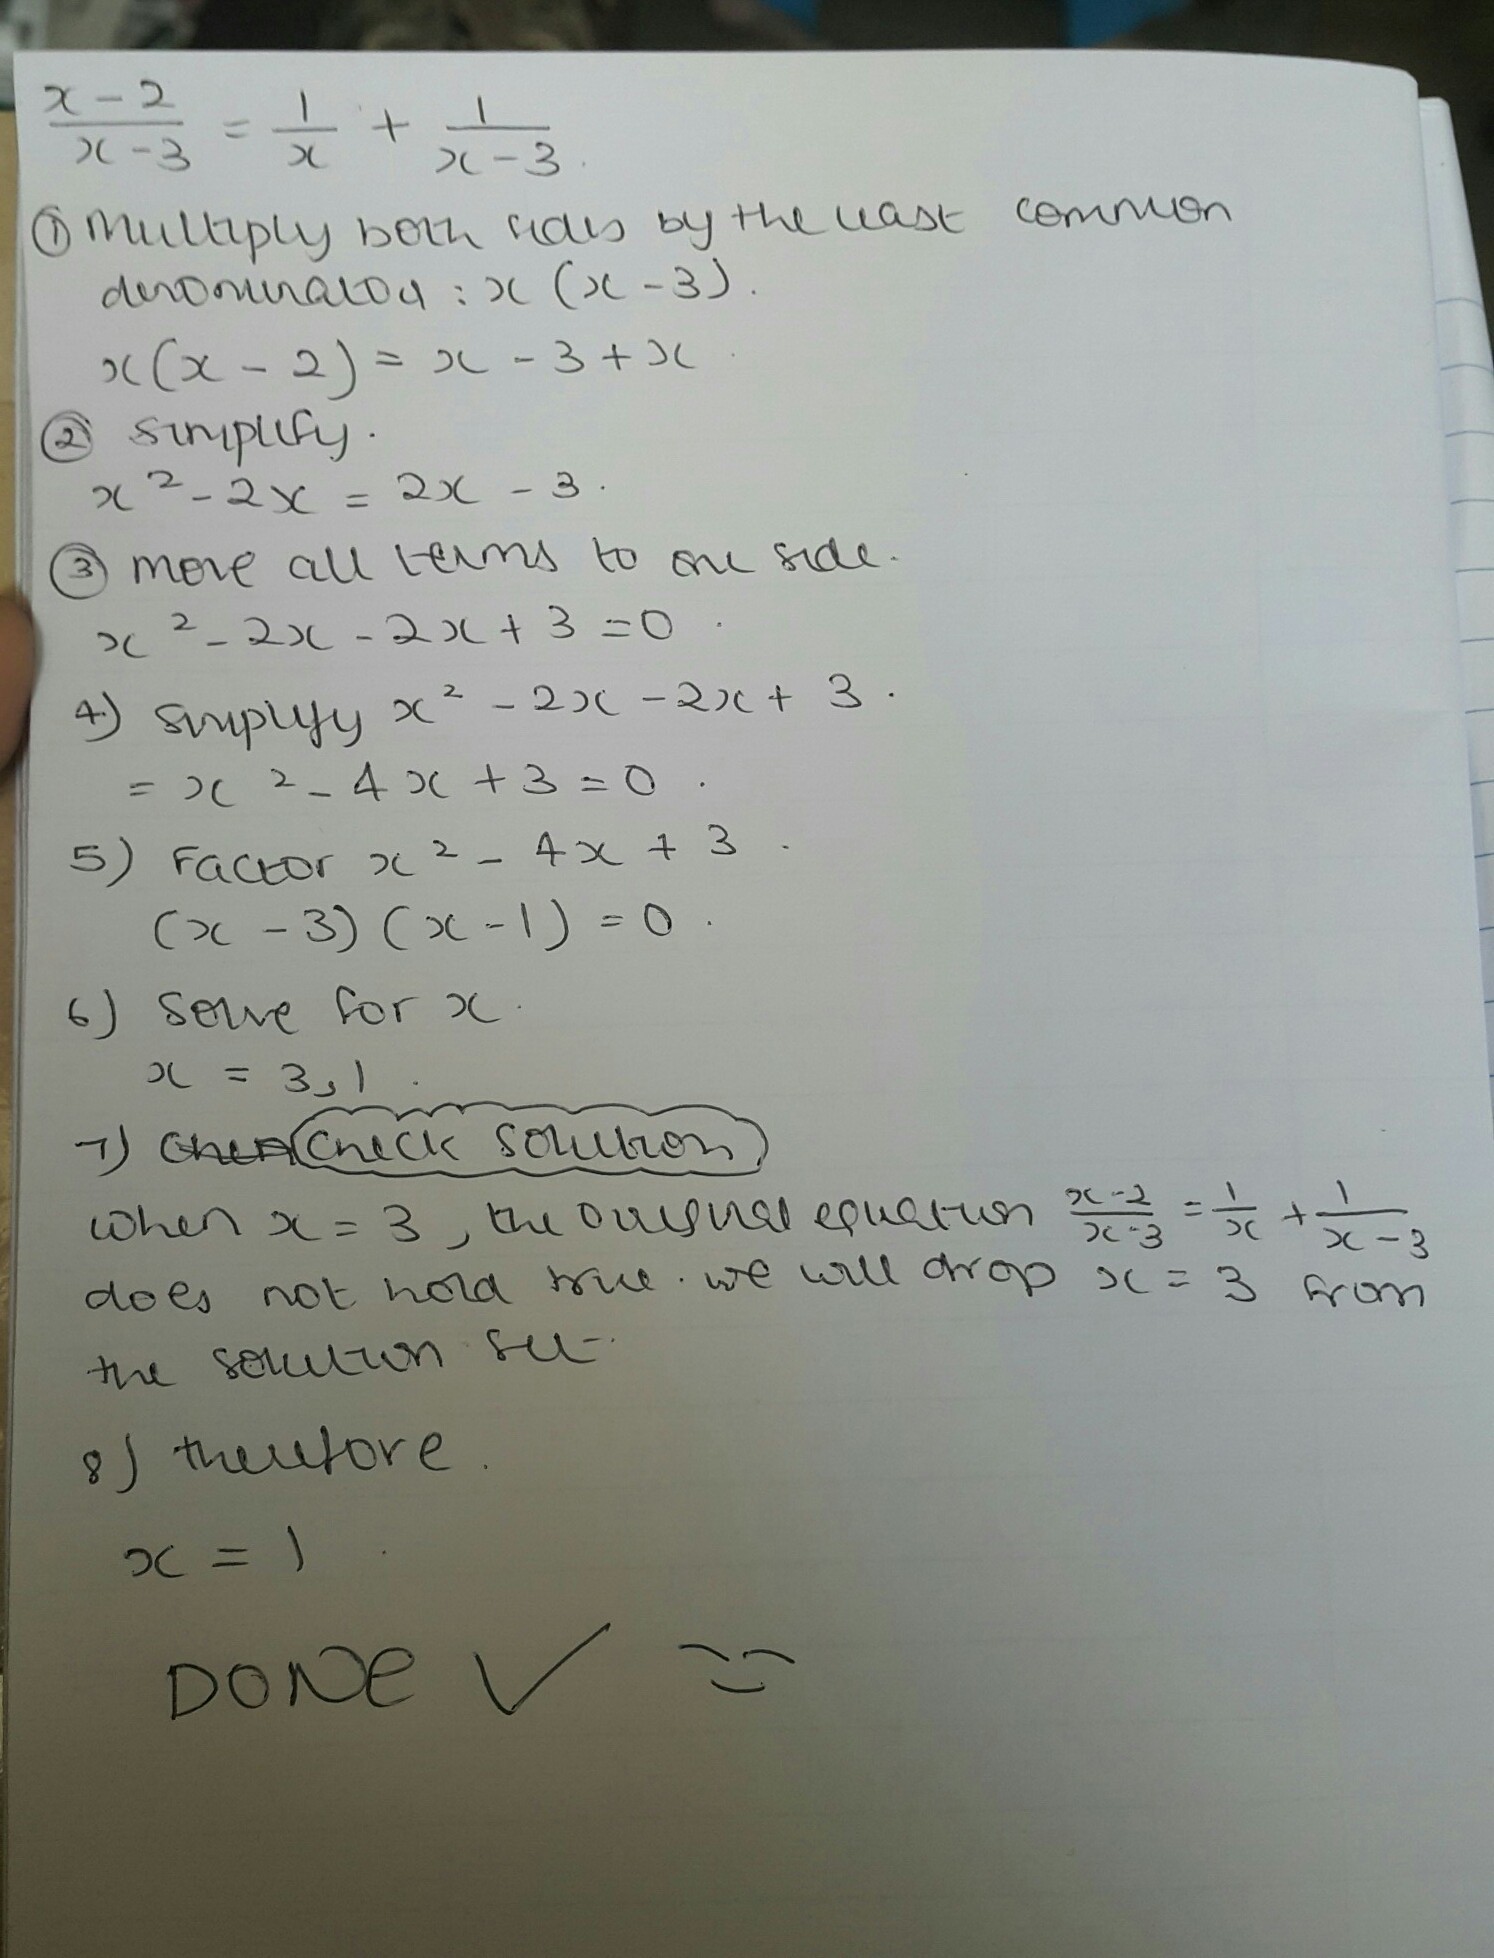 x-2/x-3 = 1/x + 1/x-3.
① Multiply both sides by the least common
denominator : x (x-3).
x(x - 2) = x - 3 + x
② simplify.
x² - 2x = 2x - 3.
③ move all terms to one side.
x² - 2x - 2x + 3 = 0.
4) simplify x² - 2x - 2x + 3.
= x² - 4x + 3 = 0.
5) Factor x² - 4x + 3.
(x - 3) (x - 1) = 0.
6) Solve for x.
x = 3, 1.
7) Check solution
When x = 3, the original equation x-2/x-3 = 1/x + 1/x-3
does not hold true. we will drop x = 3 from
the solution set.
8) therefore.
x = 1.
DONE ✓